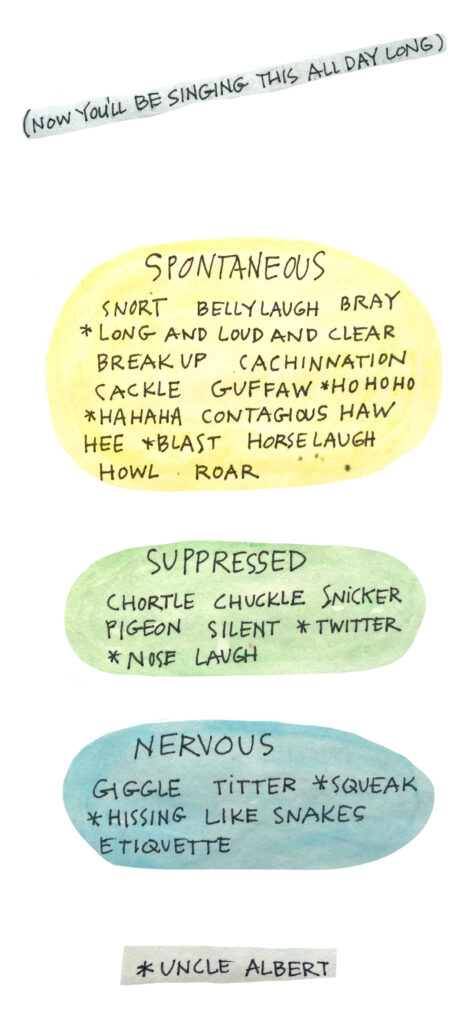 (NOW YOU'LL BE SINGING THIS ALL DAY LONG)
SPONTANEOUS
SNORT BELLY LAUGH BRAY
*LONG AND LOUD AND CLEAR
BREAK UP CACHINNATION
CACKLE GUFFAW *HO HO HO
*HAHAHA CONTAGIOUS HAW
HEE *BLAST HORSE LAUGH
HOWL ROAR
SUPPRESSED
CHORTLE CHUCKLE SNICKER
PIGEON SILENT *TWITTER
*NOSE LAUGH
NERVOUS
GIGGLE TITTER *SQUEAK
*HISSING LIKE SNAKES
ETIQUETTE
*UNCLE ALBERT